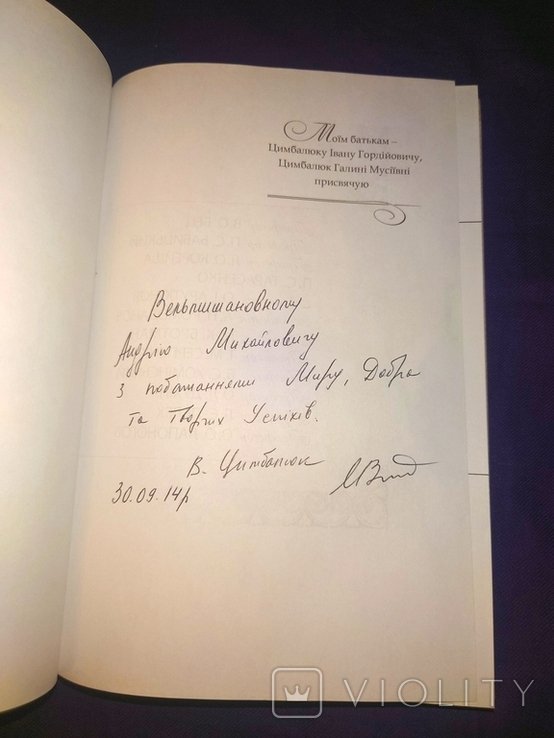 Моїм батькам –
Цимбалюку Івану Гордійовичу,
Цимбалюк Галині Мусіївні
присвячую
Вельмишановному
Андрію Михайловичу
з побажаннями Миру, Добра
та Творчих Успіхів.
В. Цимбалюк
30.09.14р
VIOLITY